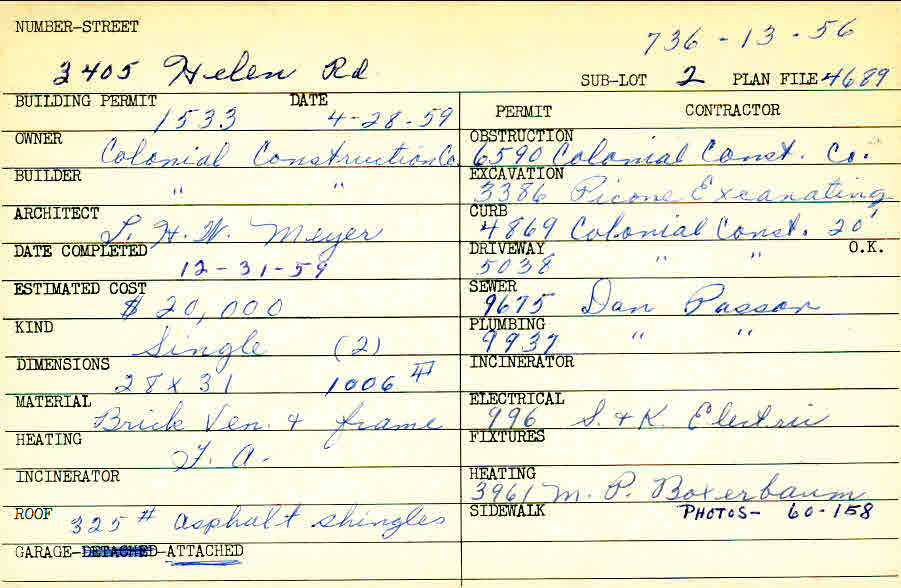 NUMBER-STREET
736-13-56
3405 Helen Rd
SUB-LOT 2 PLAN FILE 4689
BUILDING PERMIT DATE
1533 4-28-59
OWNER
Colonial Construction Co.
BUILDER
" "
ARCHITECT
L. H. W. Meyer
DATE COMPLETED
12-31-59
ESTIMATED COST
$ 20,000
KIND
Single (2)
DIMENSIONS
28 X 31 1006
MATERIAL
Brick Ven. + frame
HEATING
F. A.
INCINERATOR
ROOF 325 # asphalt shingles
GARAGE-DETACHED-ATTACHED
PERMIT CONTRACTOR
OBSTRUCTION
6590 Colonial Const. Co.
EXCAVATION
3386 Picone Excavating
CURB
4869 Colonial Const. 20'
DRIVEWAY O.K.
5038 " "
SEWER
9675 Dan Passov
PLUMBING
9937 " "
INCINERATOR
ELECTRICAL
996 S. & K. Electric
FIXTURES
HEATING
3961 M. P. Boxerbaum
SIDEWALK PHOTOS- 60-158